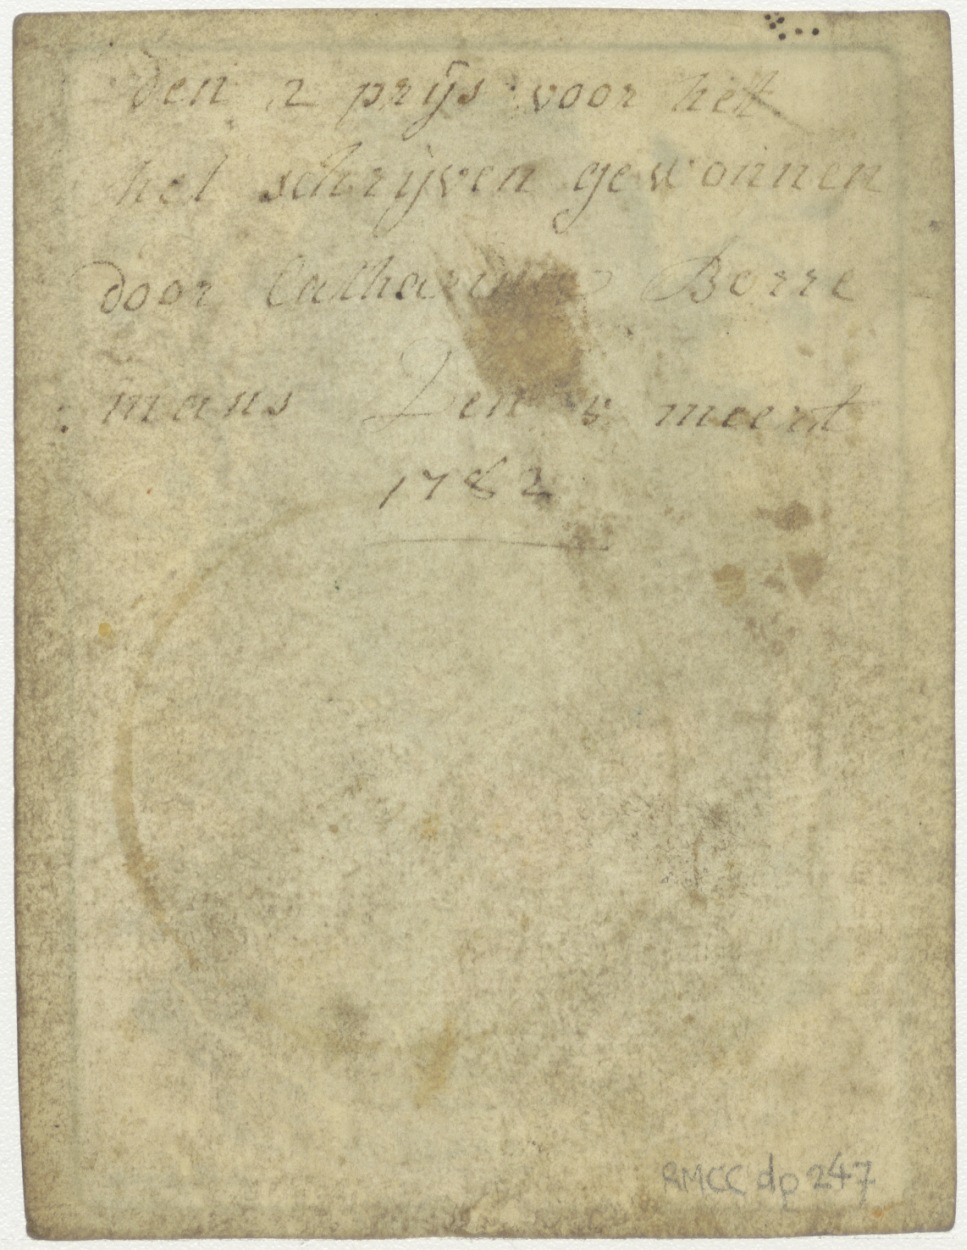 den 2 prijs voor het
het schrijven gewonnen
door Catharina Borre
: mans Den 5 meert
1782
RMCC dp 247